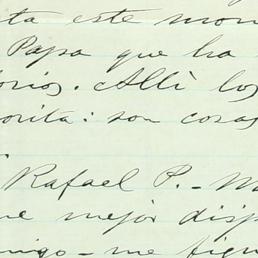 ta este mon
Papa que ha
orios. Allì los
orita: son cosas
Rafael P. - M
ne mejor disp
migo - me figu